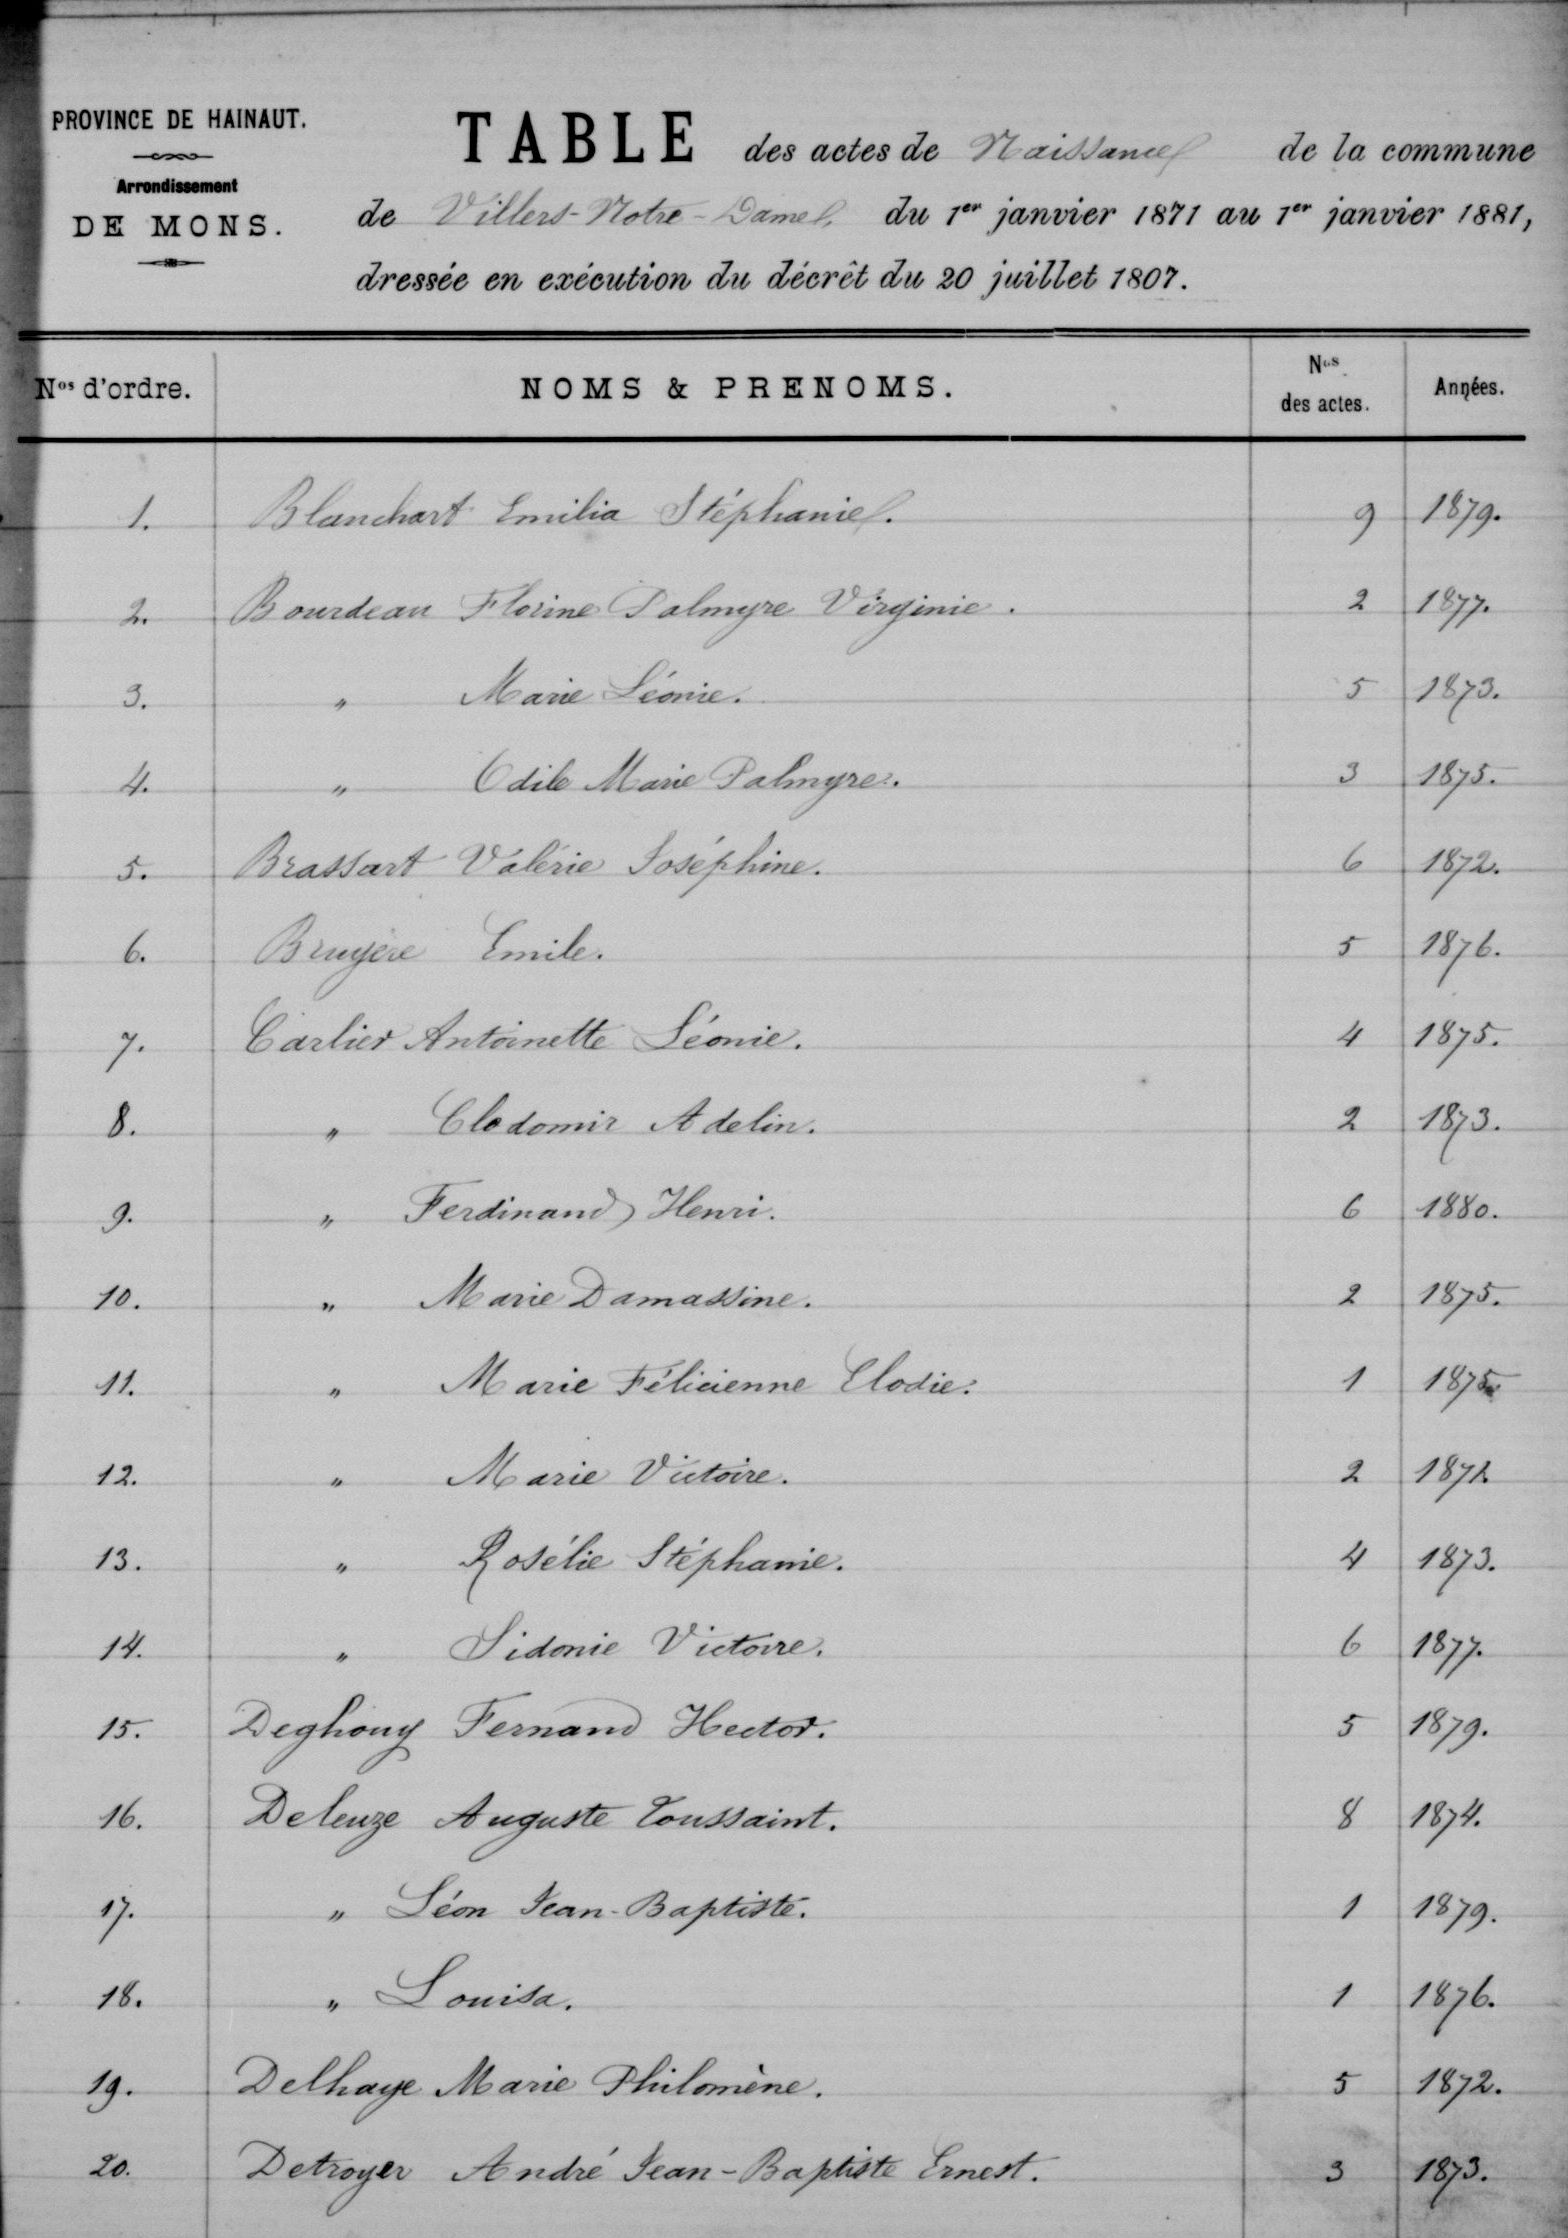 PROVINCE DE HAINAUT.
Arrondissement
DE MONS.
TABLE des actes de Naissance de la commune
de Villers-Notre-Dame du 1er janvier 1871 au 1er janvier 1881,
dressée en exécution du décrêt du 20 juillet 1807.
Nos d'ordre. NOMS & PRENOMS. Nos des actes. Années.
1. Blanchart Emilia Stéphanie. 9 1879.
2. Bourdeau Florine Palmyre Virginie. 2 1877.
3. " Marie Léonie. 5 1873.
4. " Odile Marie Palmyre. 3 1875.
5. Brassart Valérie Joséphine. 6 1872.
6. Bruyère Emile. 5 1876.
7. Carlier Antoinette Léonie. 4 1875.
8. " Clodomir Adelin. 2 1873.
9. " Ferdinand Henri. 6 1880.
10. " Marie Damassine. 2 1875.
11. " Marie Félicienne Elodie. 1 1875
12. " Marie Victoire. 2
13. " Rosélie Stéphanie. 4 1873.
14. " Sidonie Victoire. 6 1877.
15. Deghouy Fernand Hector. 5 1879.
16. Deleuze Auguste Toussaint. 8 1874.
17. " Léon Jean-Baptiste. 1 1879.
18. " Louisa. 1 1876.
19. Delhaye Marie Philomène. 5 1872.
20. Detroyer André Jean-Baptiste Ernest. 3 1873.